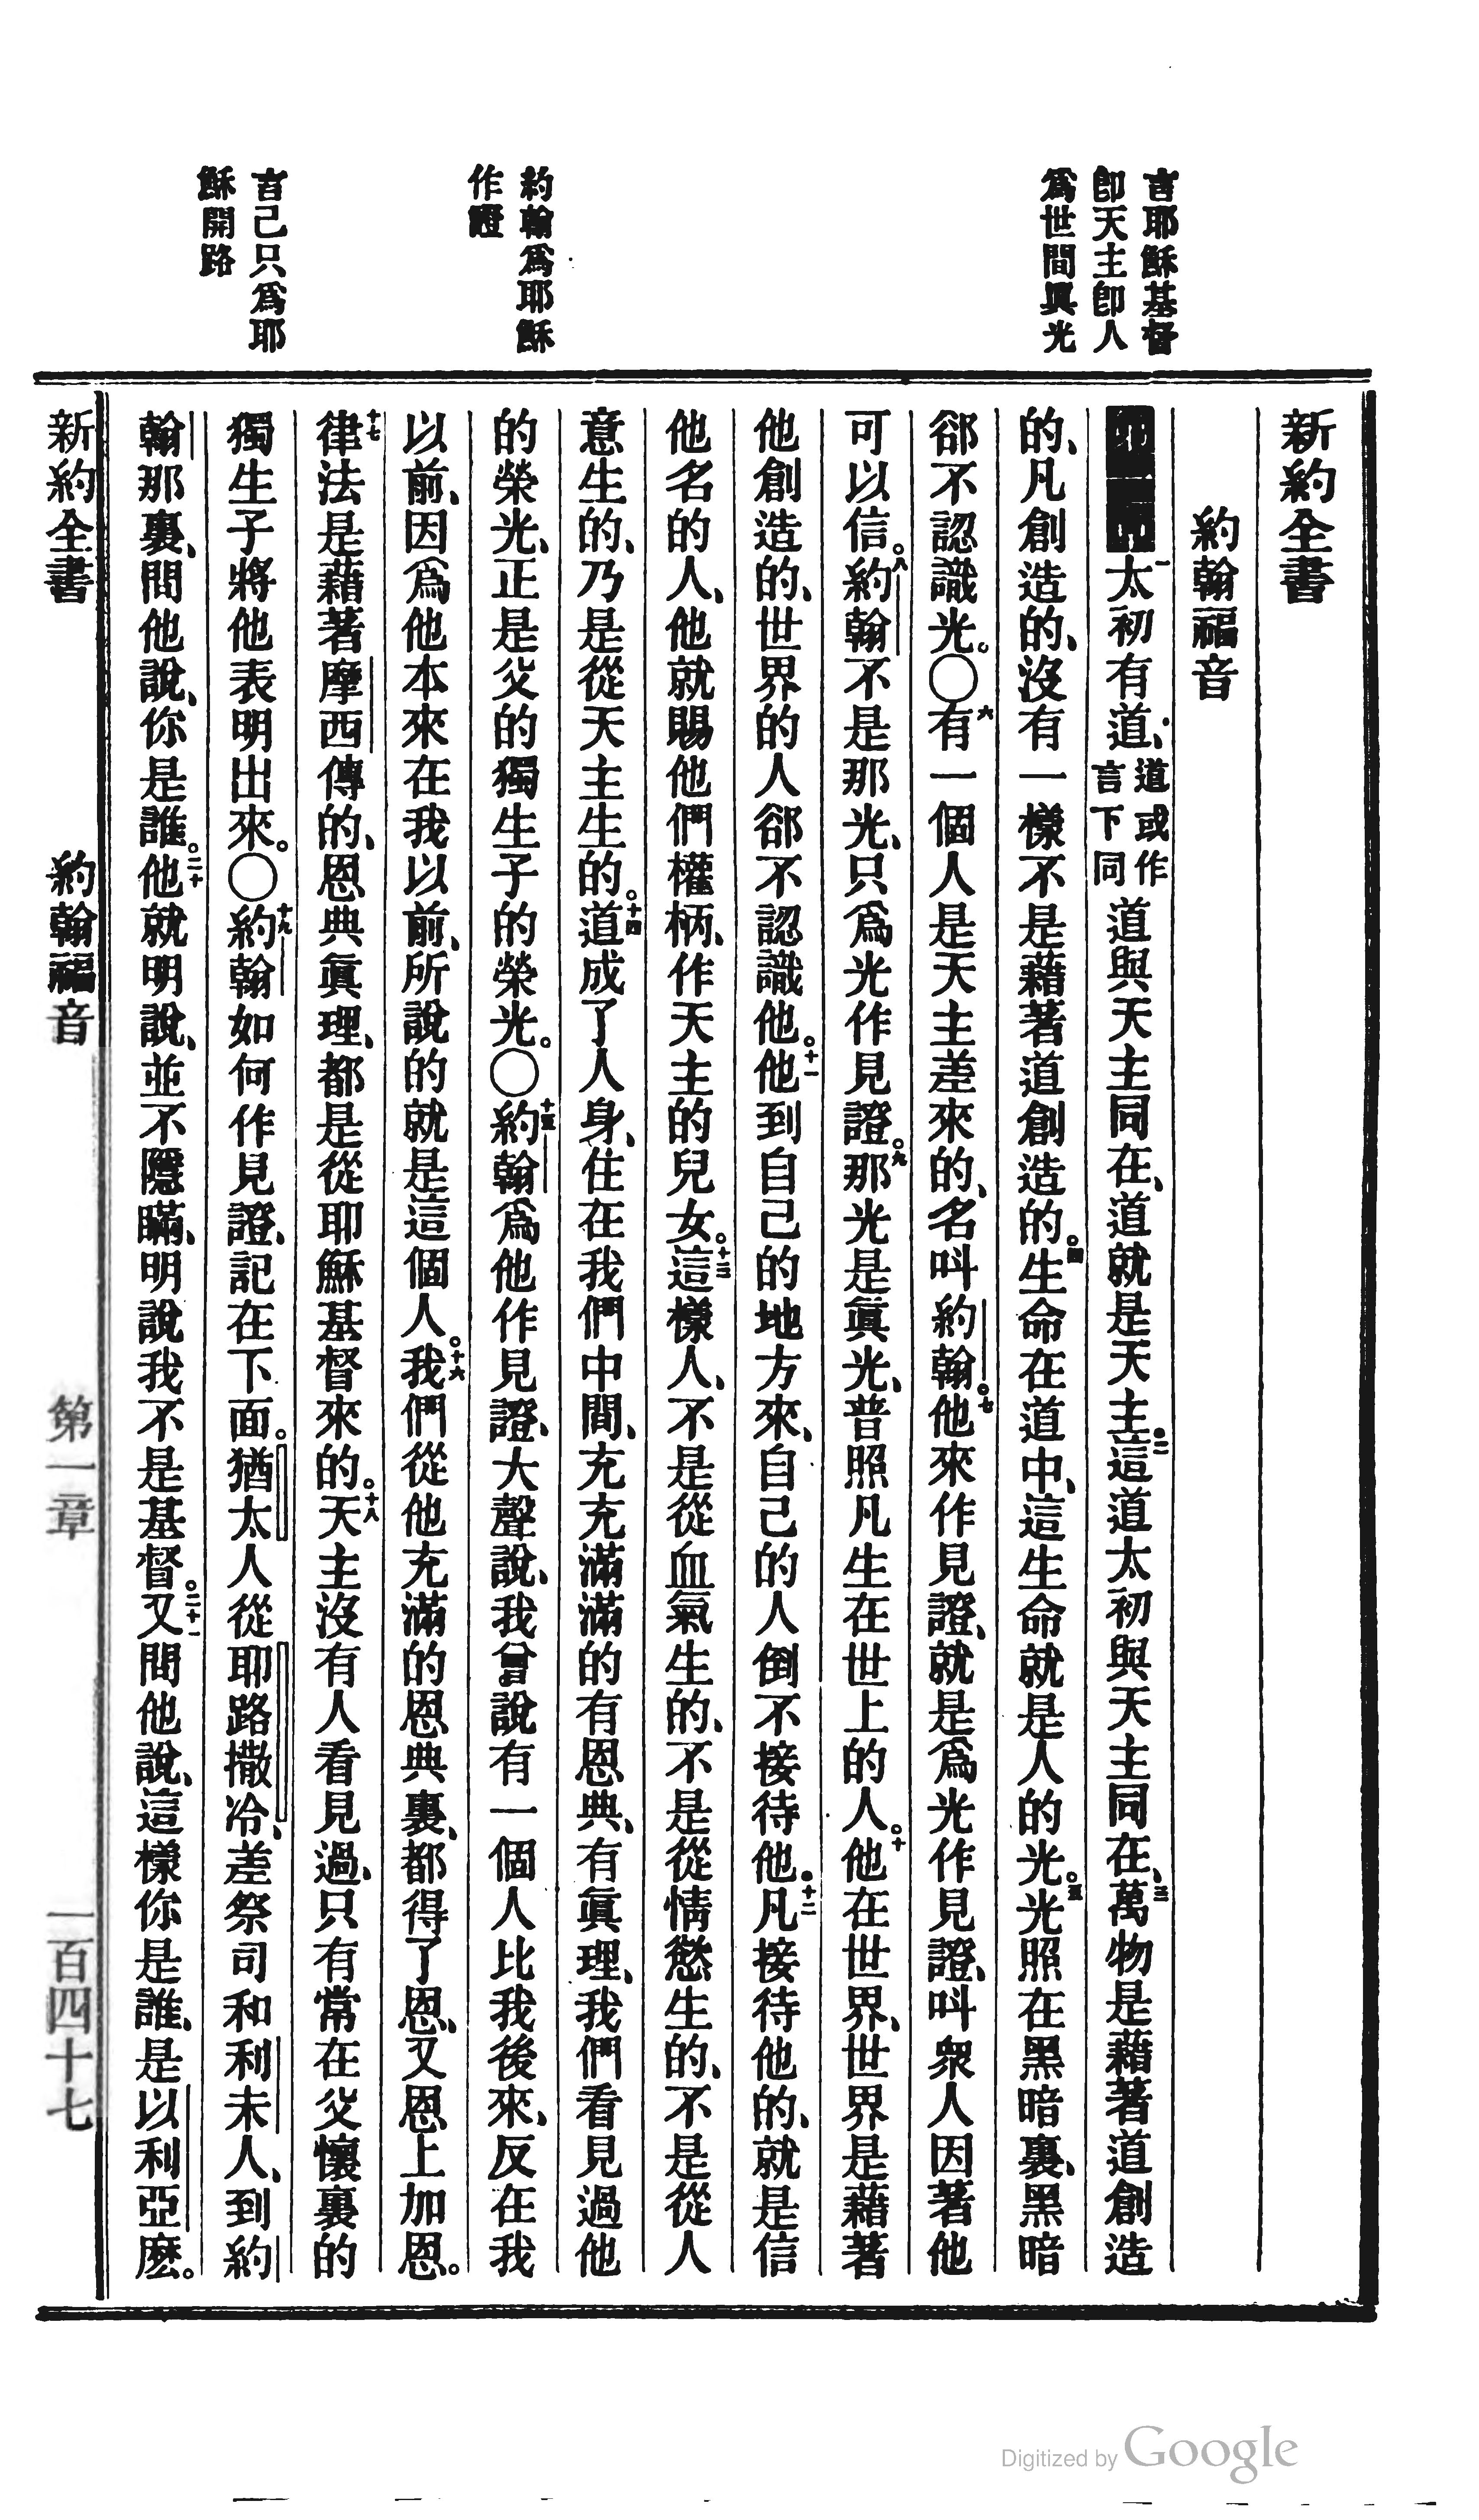 言耶穌基督
卽天主卽人
爲世間眞光
約翰爲耶穌
作證
言己只爲耶
穌開路
新約全書
約翰福音
一太初有道、道或作言下同道與天主同在、道就是天主。二這道太初與天主同在、三萬物是藉著道創造
的、凡創造的、沒有一樣不是藉著道創造的。四生命在道中、這生命就是人的光。五光照在黑暗裏、黑暗
郤不認識光。〇六有一個人是天主差來的、名叫約翰。七他來作見證、就是爲光作見證、叫衆人因著他
可以信。八約翰不是那光、只爲光作見證。九那光是眞光、普照凡生在世上的人。十他在世界、世界是藉著
他創造的、世界的人郤不認識他。十一他到自己的地方來、自己的人倒不接待他。十二凡接待他的、就是信
他名的人、他就賜他們權柄、作天主的兒女。十三這樣人、不是從血氣生的、不是從情慾生的、不是從人
意生的、乃是從天主生的。十四道成了人身、住在我們中間、充充滿滿的有恩典、有眞理、我們看見過他
的榮光、正是父的獨生子的榮光。〇十五約翰爲他作見證、大聲說、我曾說有一個人比我後來、反在我
以前、因爲他本來在我以前、所說的就是這個人。十六我們從他充滿的恩典裏、都得了恩、又恩上加恩。
十七律法是藉著摩西傳的、恩典眞理、都是從耶穌基督來的。十八天主沒有人看見過、只有常在父懷裏的
獨生子將他表明出來。〇十九約翰如何作見證、記在下面。猶太人從耶路撒冷、差祭司和利未人、到約
翰那裏、問他說、你是誰。二十他就明說、並不隱瞞、明說我不是基督。二十一又問他說、這樣你是誰、是以利亞麽。
新約全書 約翰福音 第一章 一百四十七
Digitized by Google